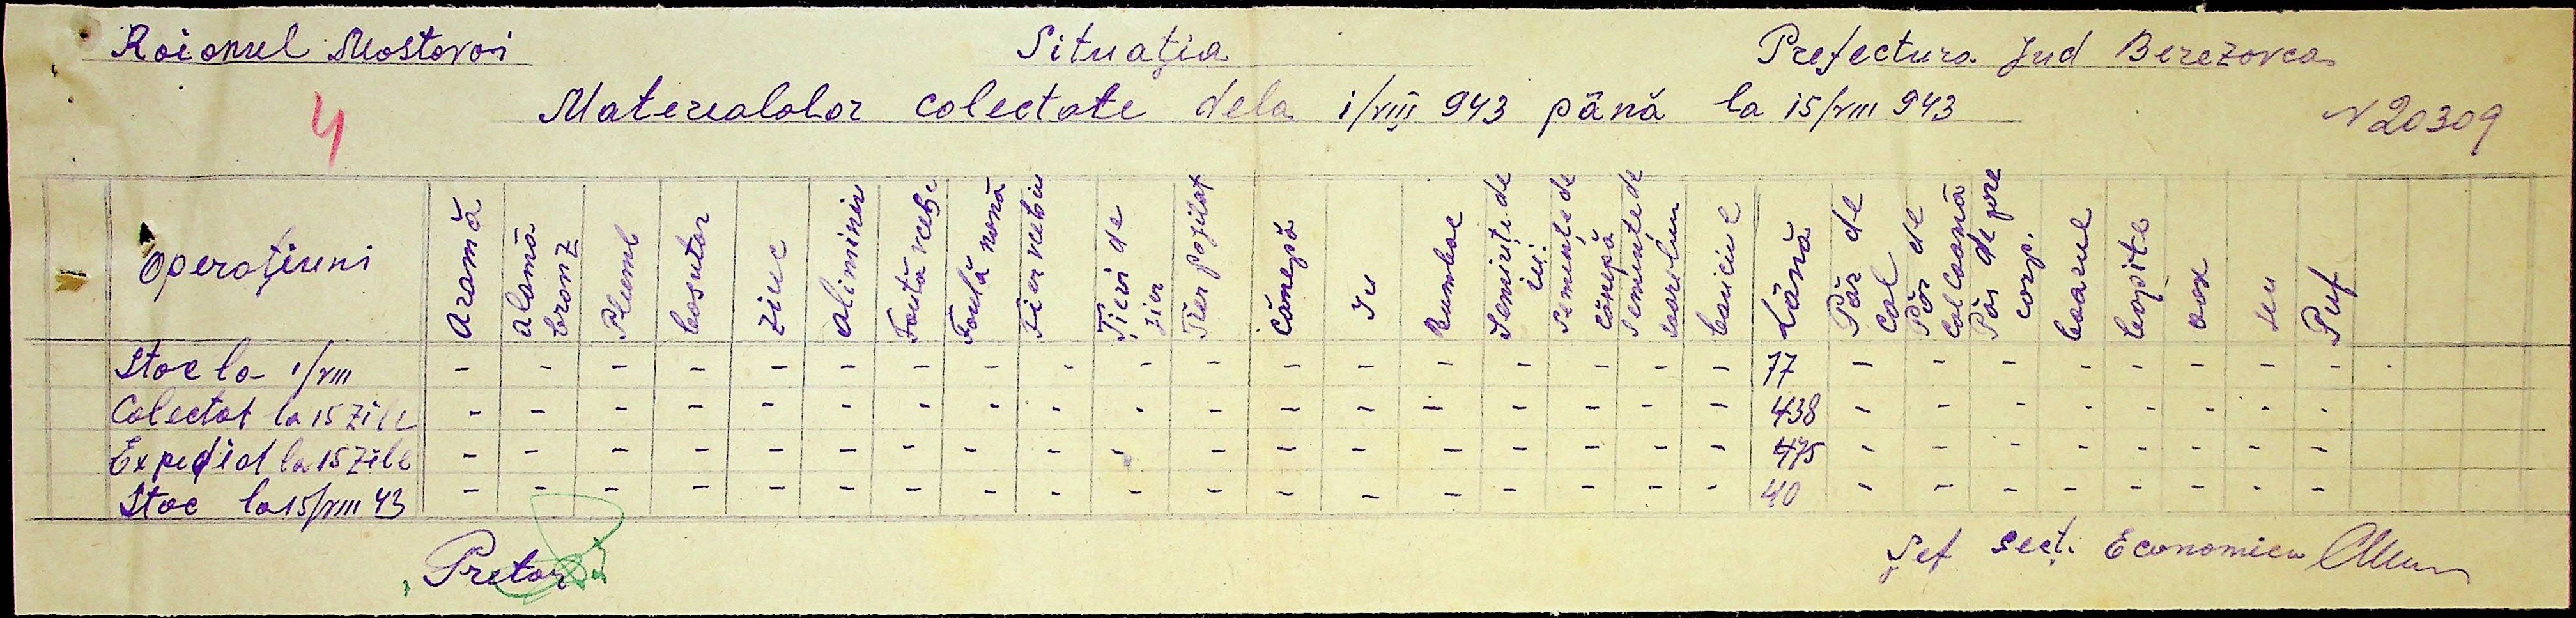 Raionul Mostovoi
Situaţia
Prefectura Jud Berezovca
Materealolor colectate dela 1/VIII 943 până la 15/VIII 943
N 20309
4
Operaţiuni
Aramă
alamă
bronz
Plumb
Cositor
Zinc
aliminiu
Fontă veche
Fontă nouă
Fier vechiu
Fier de
fier
Cânepă
In
Bumbac
Seminţe de
in
Seminţe de
cânepă
Seminţe de
Cauciuc
Lână
Păr de
cal
Păr de
Păr de pre
corp.
Coarne
Copite
oase
seu
Puf
Stoc la 1/VIII - - - - - - - - - - - - - - - - - - 77 - - - - - - - - -
Colectat la 15 Zile - - - - - - - - - - - - - - - - - - 438 - - - - - - - -
Expediat la 15 Zile - - - - - - - - - - - - - - - - - - 475 - - - - - - - -
Stoc la 15/VIII 43 - - - - - - - - - - - - - - - - - - 40 - - - - - - - -
Pretor
Şef secţ. Economica